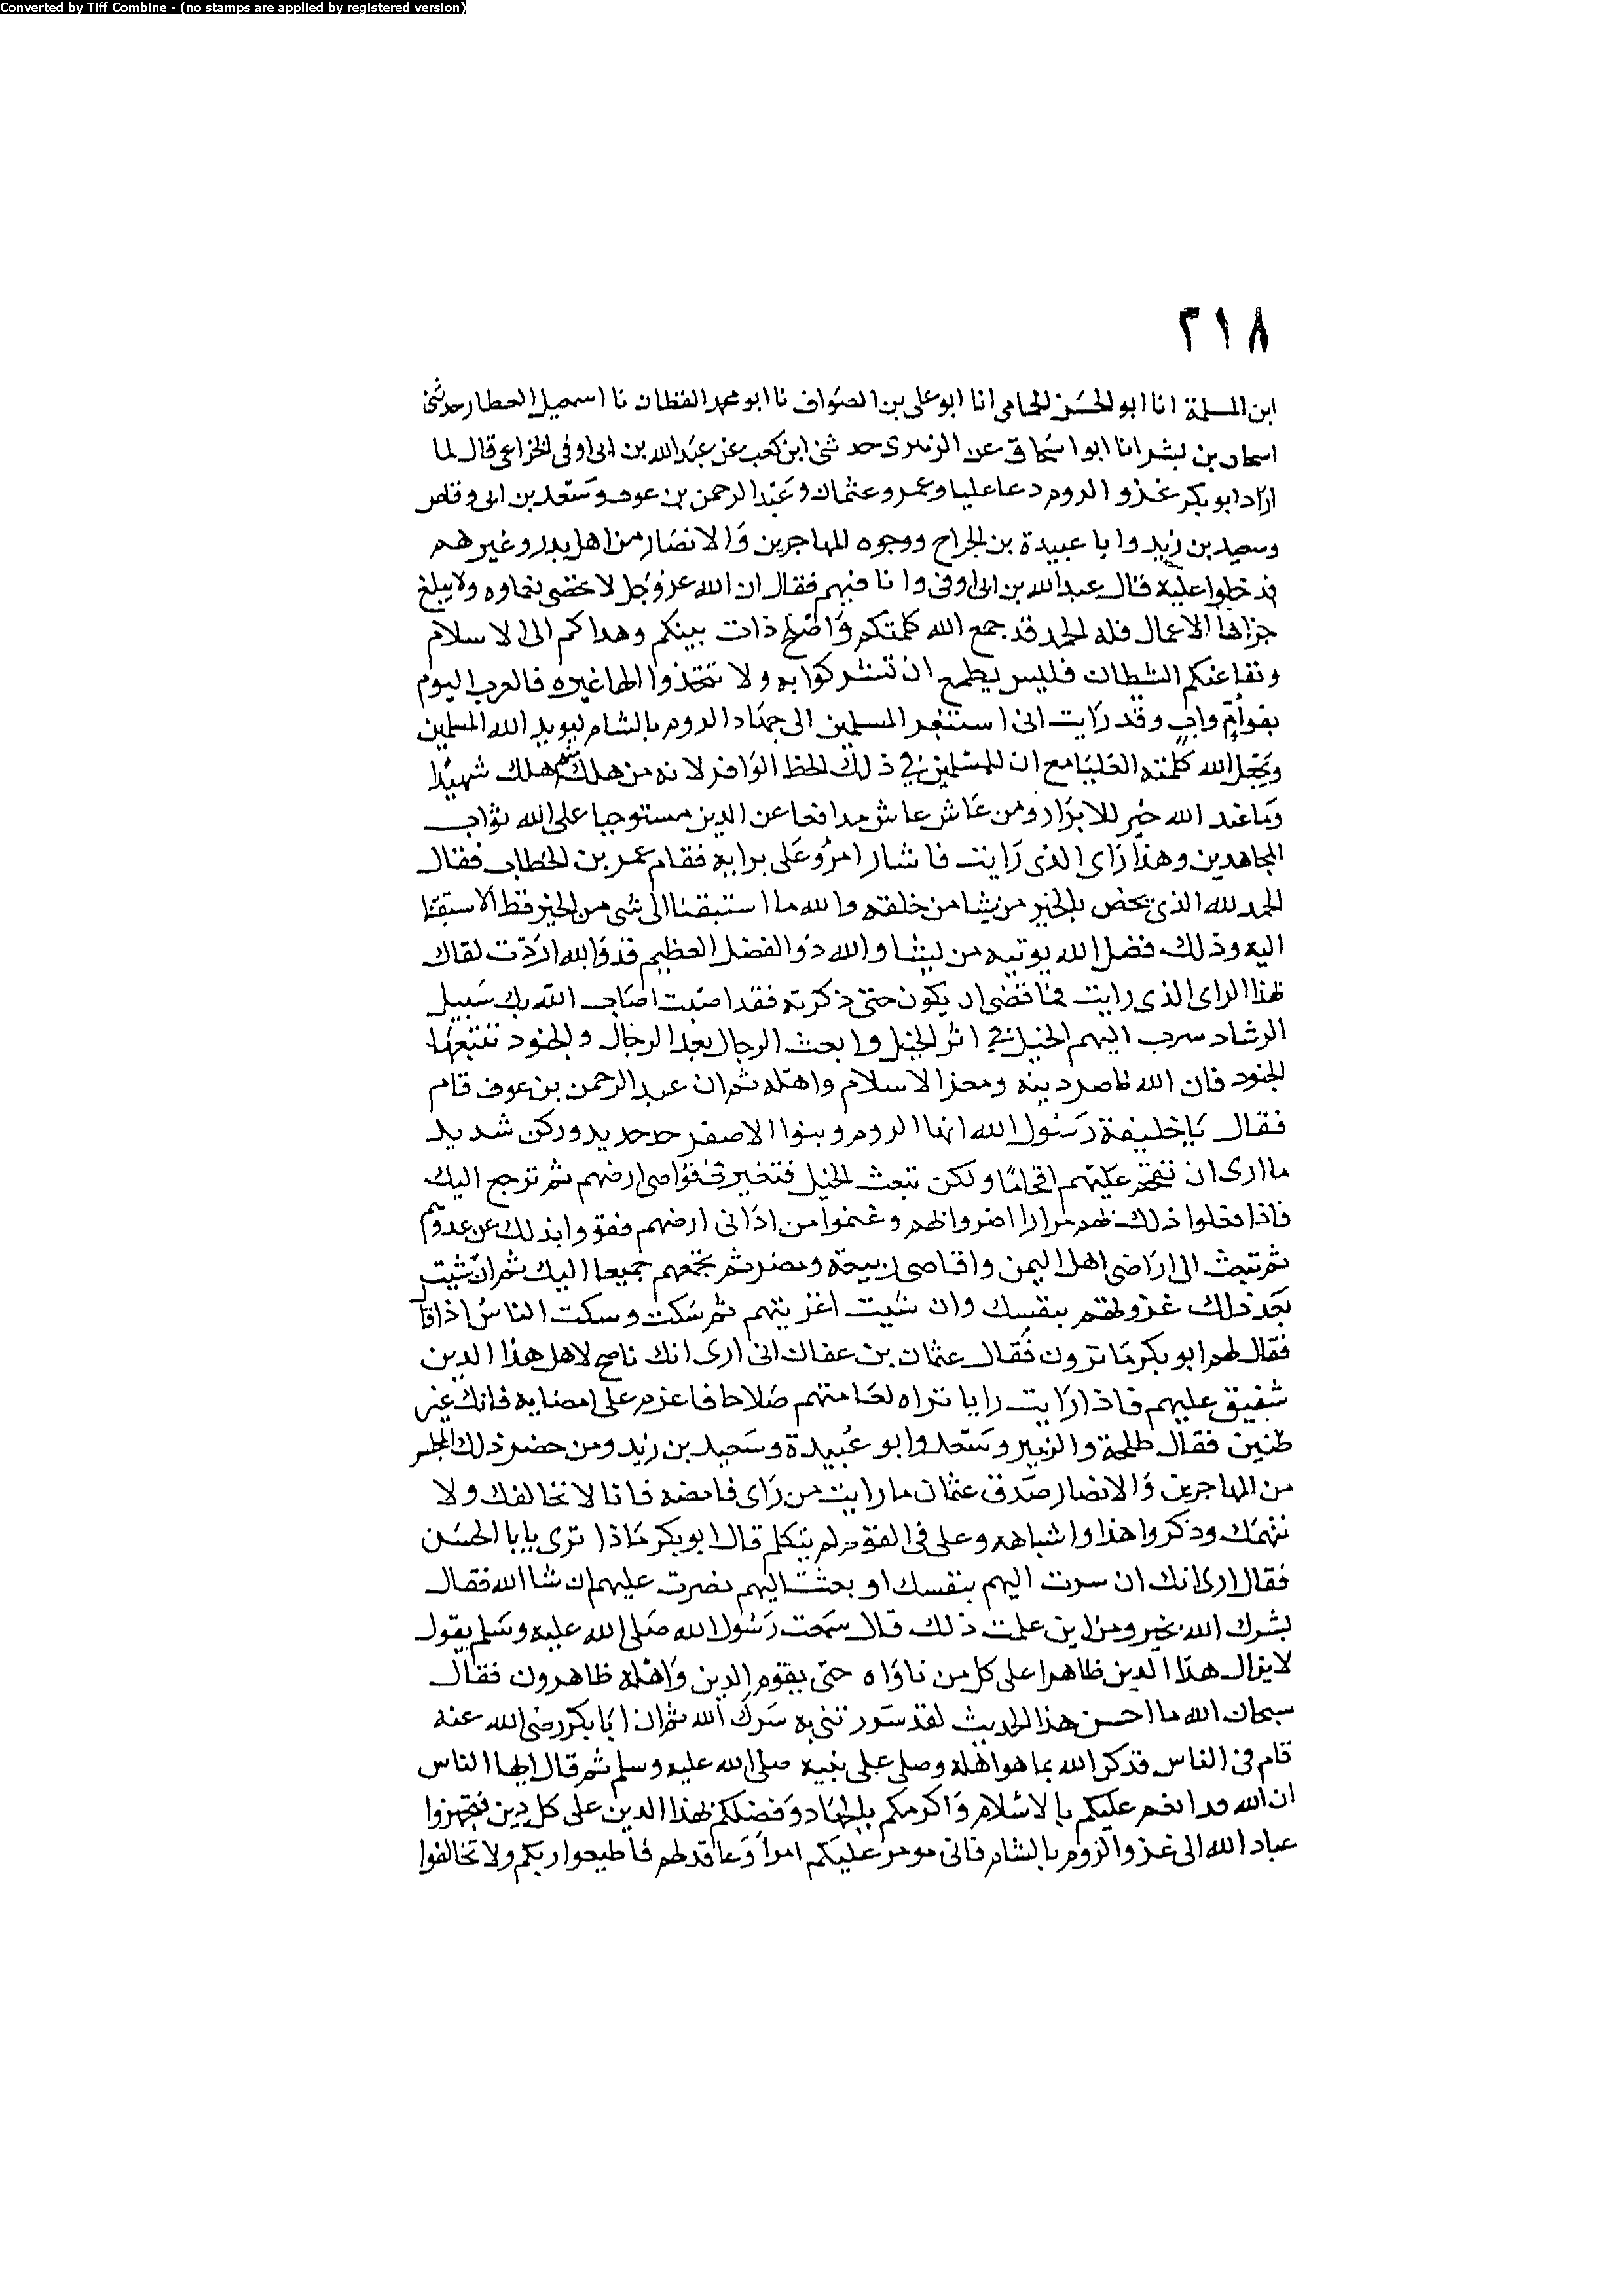 Converted by Tiff Combine - (no stamps are applied by registered version)
٣١٨
ابن المسلمة انا ابو الحسَن الحمامى انا ابو على بن الصوَاف نا ابو محمد القطان نا اسمعيل العطار حدثنى
اسحاق بن بشر انا ابو اسحَاق عن الزهرى حدثنى ابن كعب عن عبَد الله بن ابى اوفى الخزاعى قال لما
ارَاد ابو بكر غزو الروم دعا عليا وعمر وعثمان وعَبْد الرحمن بن عوف وسَعْد بن ابى وقاص
وسعيد بن زيد وابا عبيدة بن الجراح ووجوه المهاجرين وَالانصَار من اهل بدر وغيرهم
فدخلوا عليه قال عبد الله بن ابى اوفى وانا فيهم فقال ان الله عز وجَل لا تحصى نعماوه ولا يبلغ
جزاها الاعمال فله الحمد قد جمع الله كلمتكم وَاصْلح ذات بينكم وهداكم الى الاسلام
ونفا عنكم الشطان فليس يطمع ان تشركوا به ولا تتخذوا الها غيره فالعرب اليوم
بنو اُمٍّ وابٍ وقد رَايت انى استنفر المسلمين الى جهَاد الروم بالشام ليويد الله المسلمين
ويجْعل الله كلمته العَليَا مع ان للمسْلمين فى ذلك الحظ الوَافر لانه من هلك منهم هلك شهيدًا
وَما عند الله خيْر للابرَار ومن عَاش عاش مدافعا عن الدين مستوجبا على الله ثوَاب
المجاهدين وهذا رَاى الذى رَايت فاشار امرؤ عَلى برايه فقام عمر بن الخطاب فقال
الحمد لله الذى يخص بالخير من يشا من خلقه والله ما استبقنا الى شى من الخير قط الا سبقتنا
اليه وذلك فضل الله يوتيه من يشا والله ذو الفضل العظيم قد وَالله ارَدْت لقاك
لهذا الراى الذى رايت فما قضى ان يكون حتى ذكرته فقد اصَبت اصَاب الله بك سَبيل
الرشاد سرب اليهم الخيل فى اثر الخيل وابعث الرجال بعد الرجال والجنود تتبعهَا
الجنود فان الله ناصر دينه ومعز الاسلام واهله ثم ان عبد الرحمن بن عوف قام
فقال يَا خليفة رَسُول الله انها الروم وبنوا الاصفر حد حديد وركن شديد
ما ارى ان نقتحم عليْهم اقحامًا ولكن تبعث الخيل فتغير فى قوَاصى ارضهم ثم ترجع اليك
فاذا فعلوا ذلك بهم مرارا اضروا بهم وغنموا من ادَانى ارضهم فقووا بذلك عن عدوهم
ثم تبعث الى ارَاضى اهل اليمن واقاصى ربيعة ومضر ثم تجمعهم جميعا اليك ثم ان شيت
بَعد ذلك غزوتهم بنفسك وان شيت اغزيتهم ثم سَكت وسكت الناسُ اذاقا
فقال لهم ابو بكر مَا ترون فقال عثمان بن عفان انى ارى انك ناصح لاهل هذا الدين
شفيق عليهم فاذا رَايت رايا تراه لعَامتهم صَلاحا فاعزم على امضايه فانك غير
ظنين فقال طلحة والزبير وسَعْد وابو عُبيدة وسَعيد بن زيد ومن حضر ذلك المجلس
من المهاجرين وَالانصار صَدق عثمان ما رايت من رَاى فامضه فانا لا نخالفك ولا
نتهمَك وذكروا هذا واشباهه وعلى فى القوم لم يتكلم قال ابو بكر مَاذا ترى يابا الحسَن
فقال ارى انك ان سرت اليهم بنفسك او بعثت اليهم نصرت عليهم ان شا الله فقال
بشرك الله بخير ومن اين علمت ذلك قال سَمعت رَسُول الله صَلى الله عليه وسَلم يقول
لا يزال هذَا الدين ظاهرا على كل من ناوَاه حتى يقوَم الدين وَاهْله ظاهرون فقال
سبحان الله ما احسن هذا الحديث لقد سَررتنى به سَركَ الله ثم ان ابَا بكر رضى الله عنه
قام فى الناس فذكر الله بما هو اهْله وصلى على نبيه صلى الله عليه وسلم ثم قال ايها الناس
ان الله قد انعم عليكم بالاسْلام وَاكرمكم بالجهَاد وَفضلكم بهذا الدين على كل دين فتجهزوا
عباد الله الى غزو الروم بالشام فانى مومر عليَكم امرآ وَعاقد لهم فاطيعوا ربكم ولا تخالفوا